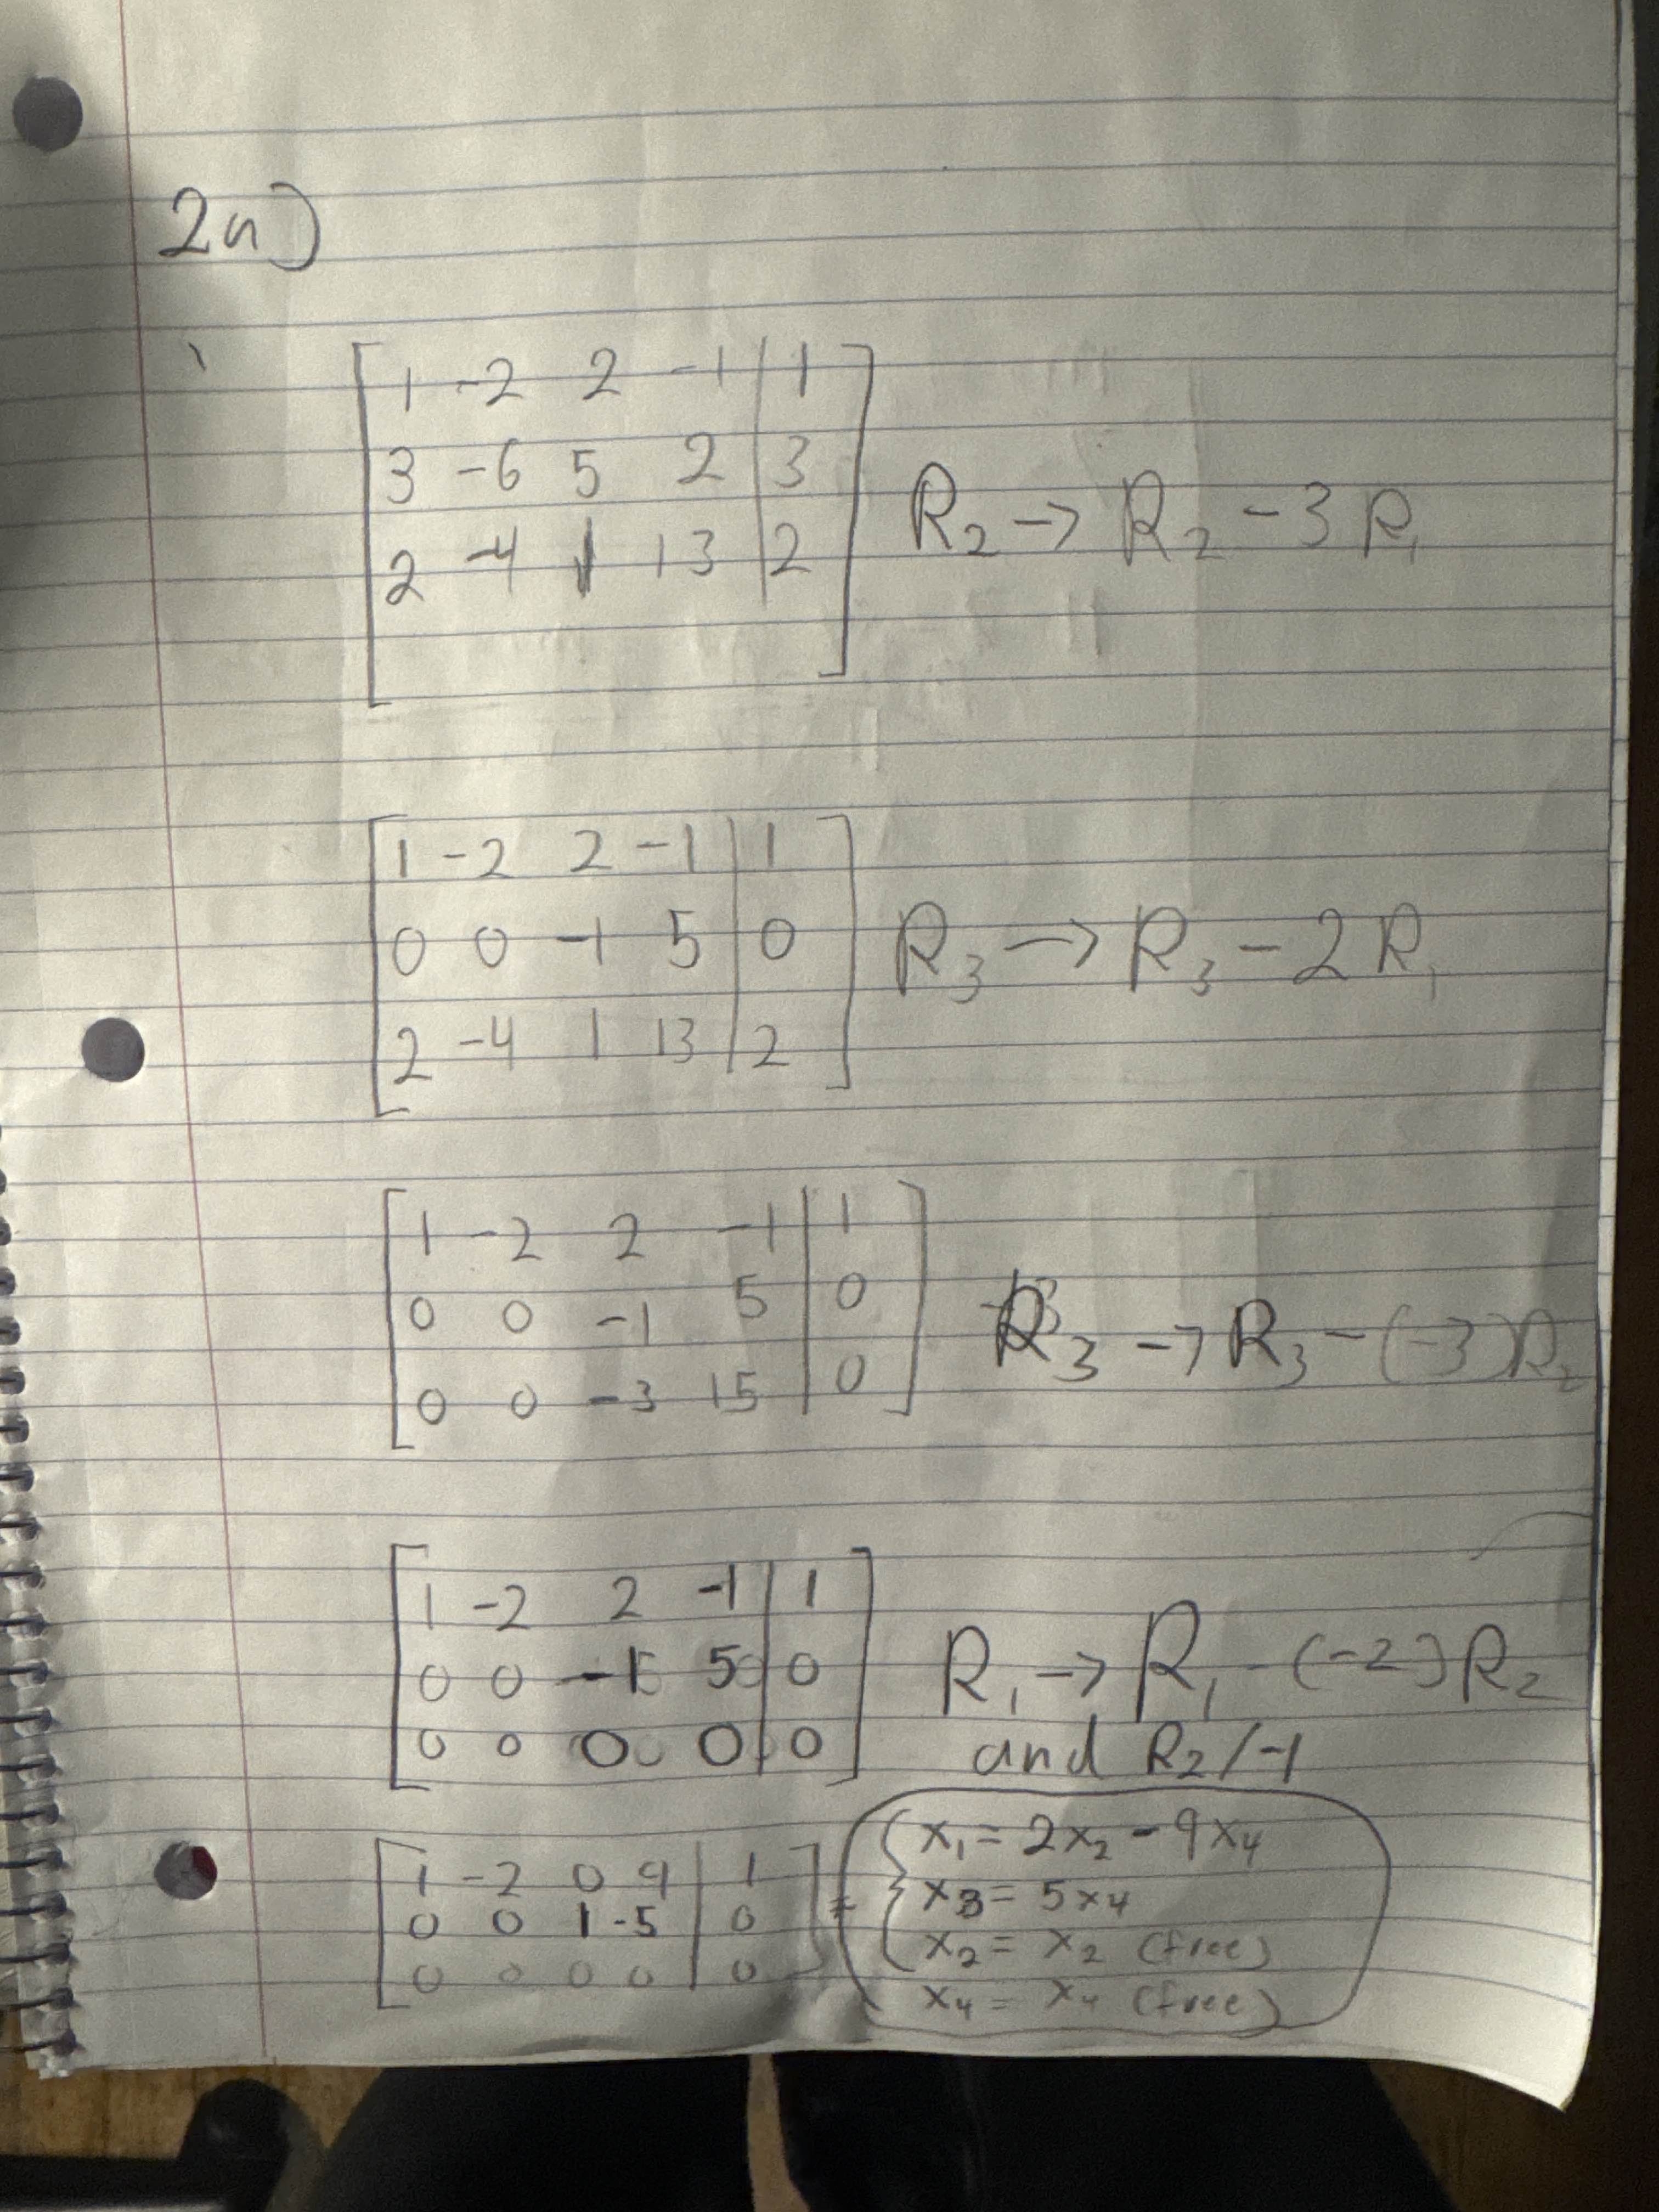 2a)
1 -2 2 -1 | 1
3 -6 5 2 | 3
2 -4 1 13 | 2
R₂ → R₂ - 3R₁
1 -2 2 -1 | 1
0 0 -1 5 | 0
2 -4 1 13 | 2
R₃ → R₃ - 2R₁
1 -2 2 -1 | 1
0 0 -1 5 | 0
0 0 -3 15 | 0
R₃ → R₃ - (-3)R₂
1 -2 2 -1 | 1
0 0 -1 5 | 0
0 0 0 0 | 0
R₁ → R₁ - (-2)R₂
and R₂/-1
1 -2 0 9 | 1
0 0 1 -5 | 0
0 0 0 0 | 0
x₁ = 2x₂ - 9x₄
x₃ = 5x₄
x₂ = x₂ (free)
x₄ = x₄ (free)